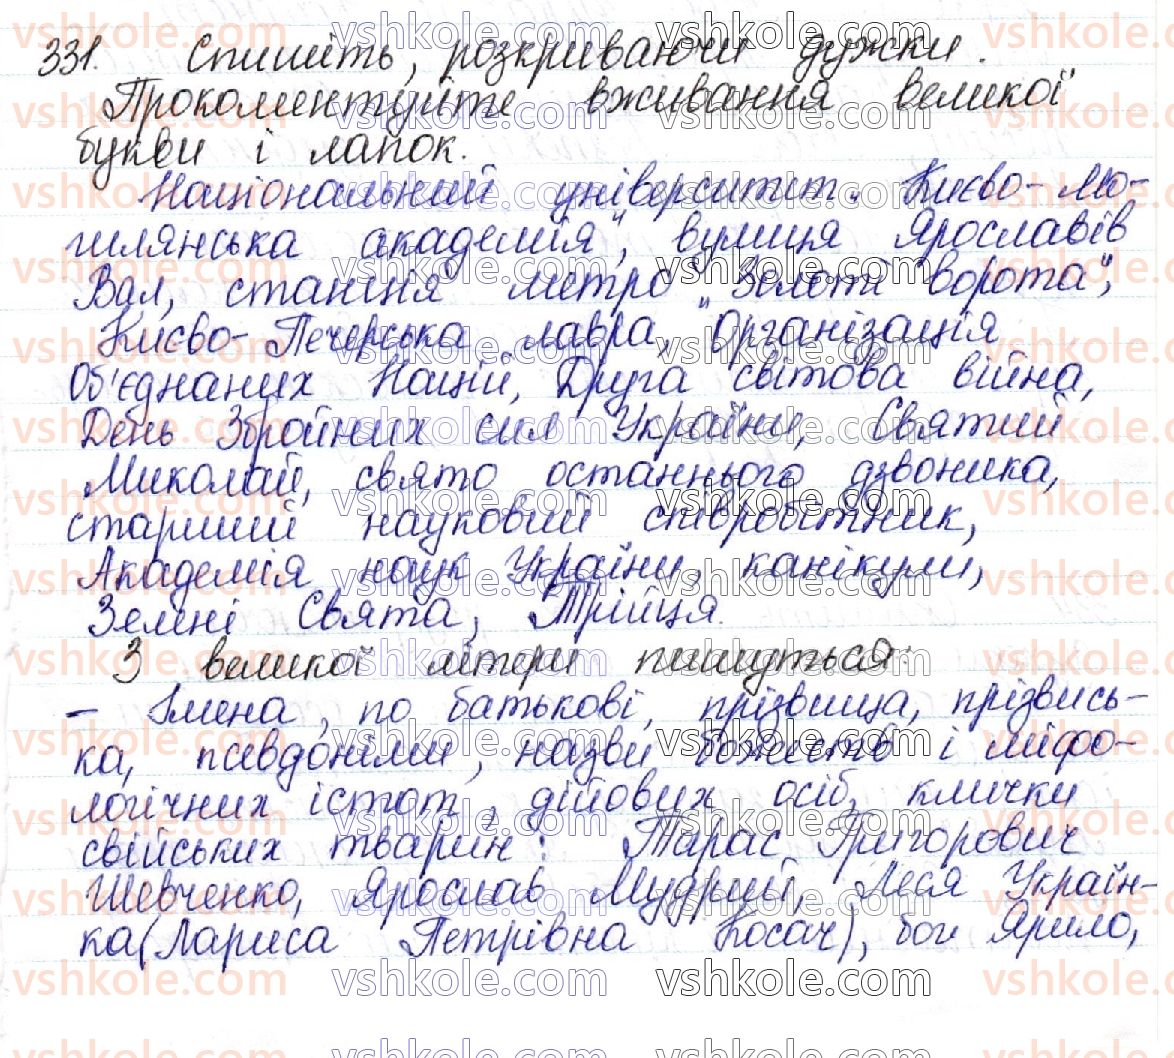 331. Спишіть, розкриваючи дужки.
Прокоментуйте вживання великої
букви і лапок.
Національний університет „Києво-Мо-
гилянська академія“, вулиця Ярославів
Вал, станція метро „Золоті ворота“,
Києво-Печерська лавра, Організація
Об'єднаних Націй, Друга світова війна,
День Збройних сил України, Святий
Миколай, свято останнього дзвоника,
старший науковий співробітник,
Академія наук України, канікули,
Зелені Свята, Трійця.
З великої літери пишуться:
- Імена, по батькові, прізвища, прізвись-
ка, псевдоніми, назви божеств і міфо-
логічних істот, дійових осіб, клички
свійських тварин: Тарас Григорович
Шевченко, Ярослав Мудрий, Леся Україн-
ка (Лариса Петрівна Косач), бог Ярило,
vshkole.com